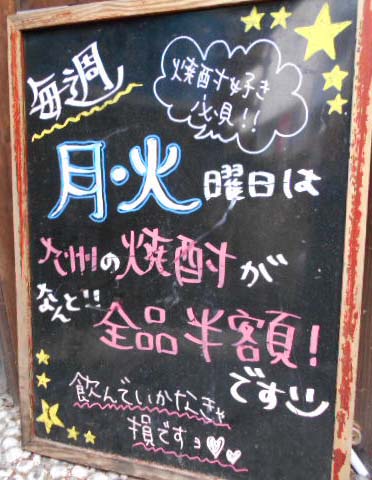 毎週
焼酎好き
必見!!
月・火曜日は
九州の焼酎が
なんと!!
全品半額!
です
飲んでいかなきゃ
損ですョ♡♡